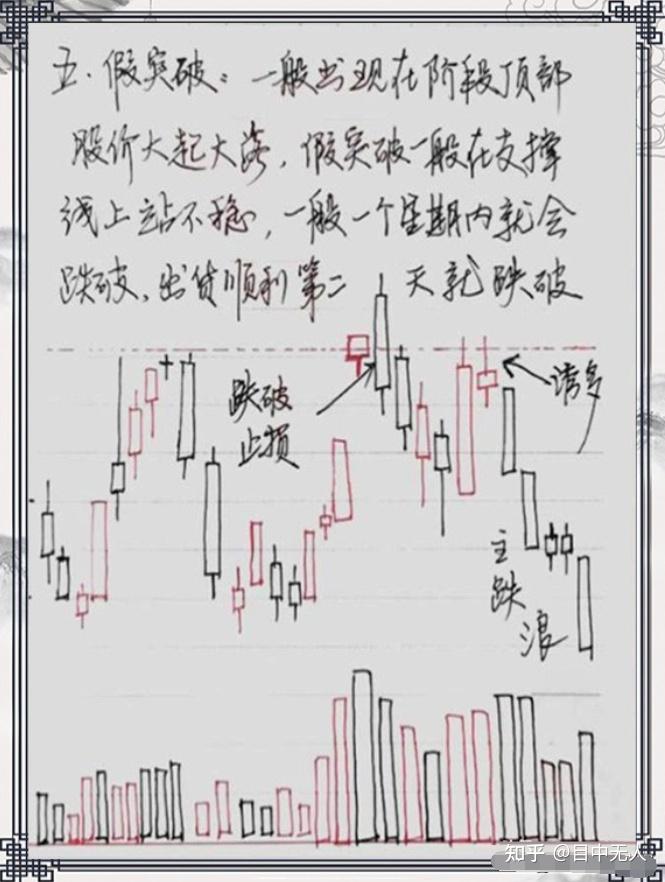 五.假突破：一般出现在阶段顶部
股价大起大落，假突破一般在支撑
线上站不稳，一般一个星期内就会
跌破，出货顺利第二 天就跌破
跌破
止损
诱多
主
跌
浪
知乎 @目中无人